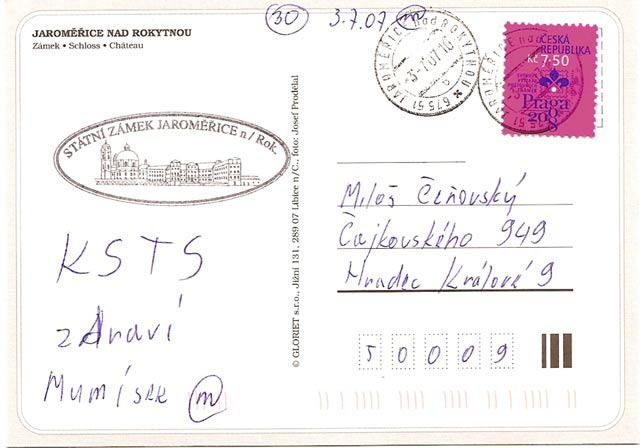 JAROMĚŘICE NAD ROKYTNOU
Zámek • Schloss • Château
30 3.7.07 m
JAROMĚŘICE nad ROKYTNOU
-3-7.07-16
6
675 51
ČESKÁ
REPUBLIKA
Kč 7·50
Praga
2008
STÁTNÍ ZÁMEK JAROMĚŘICE n/Rok.
© GLORIET s.r.o., Jižní 131, 289 07 Libice n/C., foto: Josef Prodělal
Miloš
Čajkovského 949
Hradec Králové 9
5 0 0 0 9
KSTS
zdraví
m